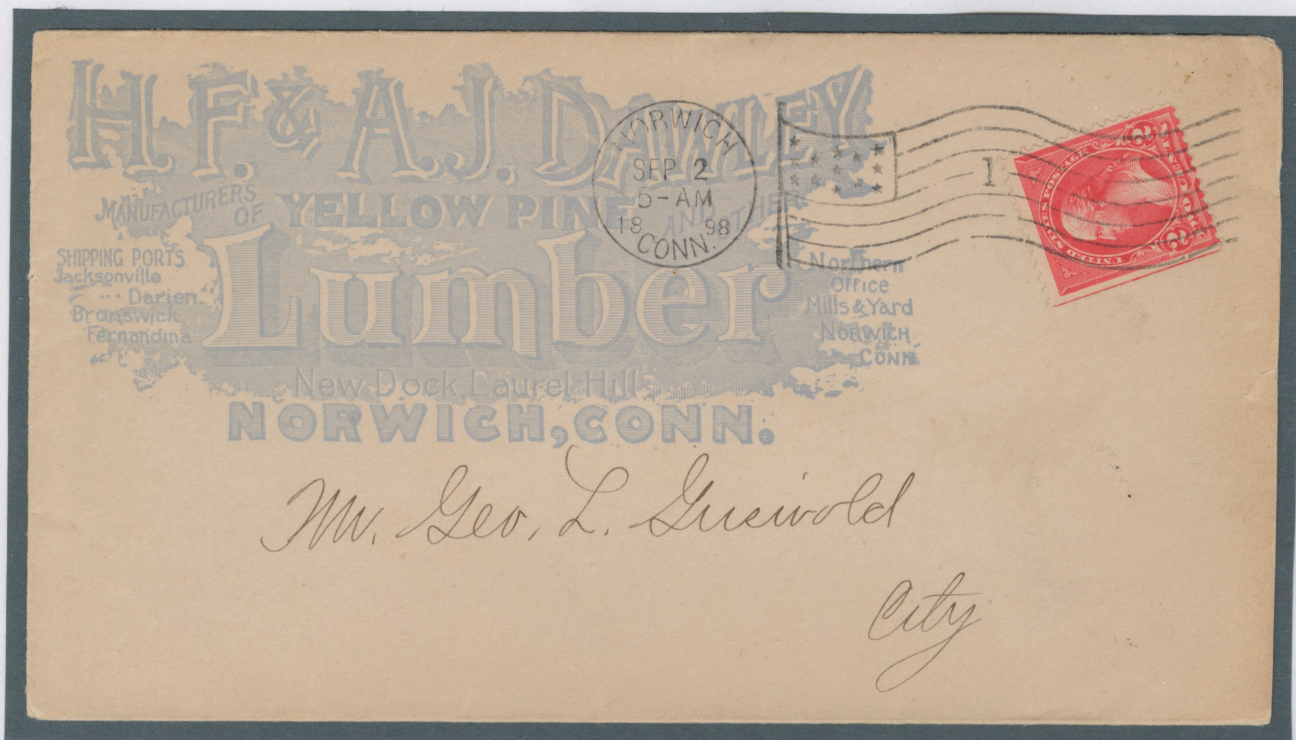 H. F. & A. J. DAWLEY
MANUFACTURERS OF YELLOW PINE AND OTHER
Lumber
SHIPPING PORTS.
Jacksonville
Darien
Brunswick
Fernandina
Northern
Office
Mills & Yard
NORWICH
CONN.
New Dock Laurel Hill
NORWICH, CONN.
NORWICH
SEP 2
5-AM
1898
CONN.
1
UNITED STATES POSTAGE
2 2
Mr. Geo. L. Griswold
City